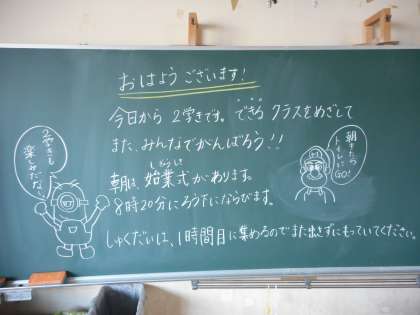 おはようございます!
今日から2学きです。できるクラスをめざして
また、みんなでがんばろう!!
朝は、始業式があります。
しぎょうしき
8時20分にろう下にならびます。
しゅくだいは、1時間目に集めるのでまだ出さずにもっていてください。
2学きも
楽しみだな。
朝きたら
トイレに
GO!